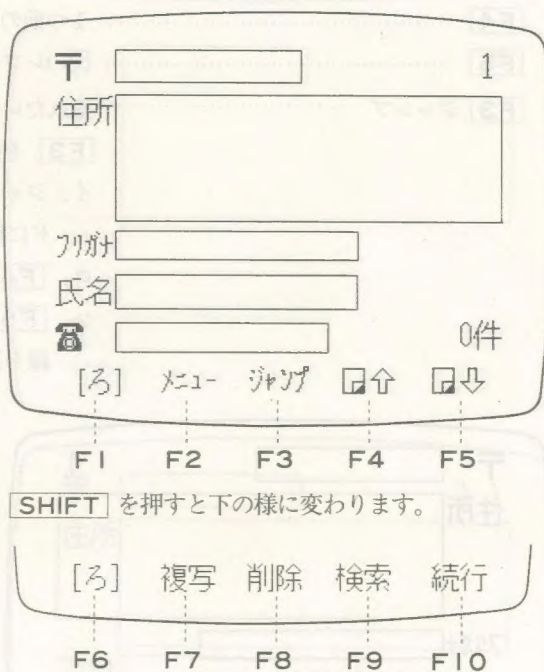 〒 1
住所
フリガナ
氏名
☎ 0件
[ろ] メニュー ジャンプ ⇧ ⇩
F1 F2 F3 F4 F5
SHIFT を押すと下の様に変わります。
[ろ] 複写 削除 検索 続行
F6 F7 F8 F9 F10